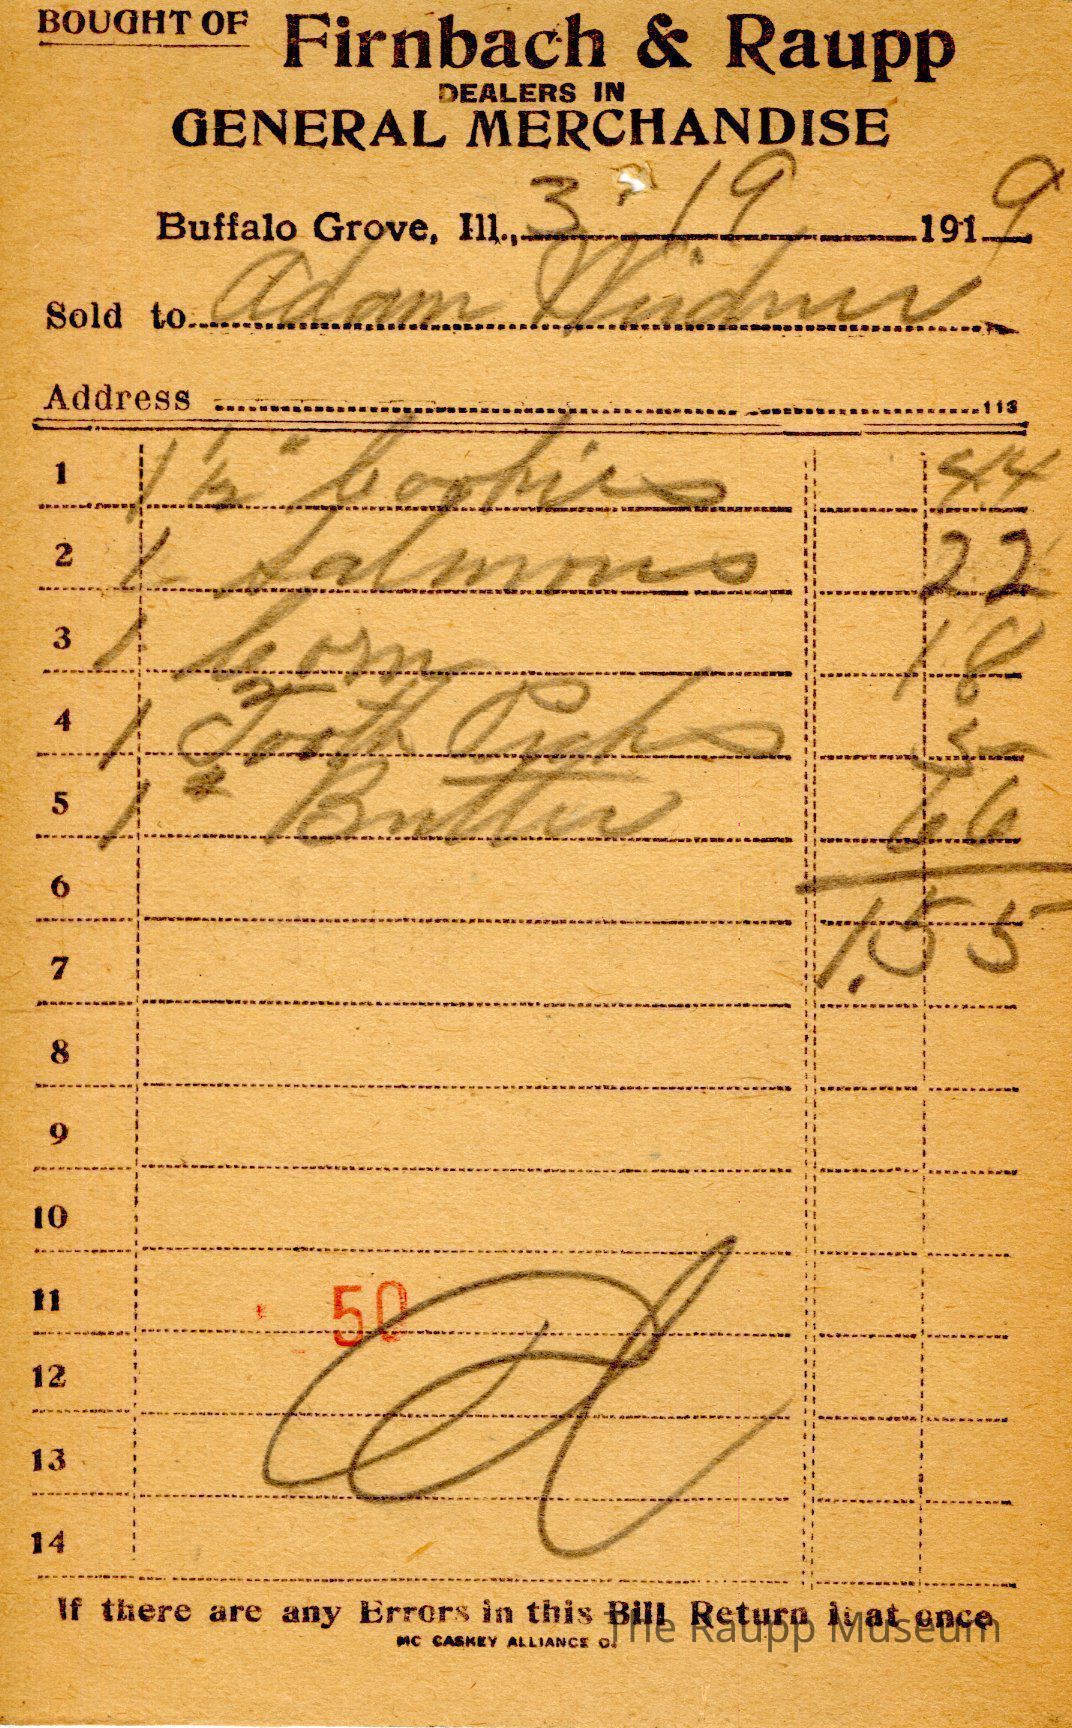 BOUGHT OF Firnbach & Raupp
DEALERS IN
GENERAL MERCHANDISE
Buffalo Grove, Ill., 3-19 1919
Sold to Adam Weidner
Address 113
1 1 1/2 " Cookies 44
2 1 Salmons 22
3 1 Corn 18
4 1 Tooth Picks 5
5 1 # Butter 66
6
1.55
7
8
9
10
11 50
12
13
14
If there are any Errors in this Bill Return it at once
MC CASKEY ALLIANCE O.
The Raupp Museum